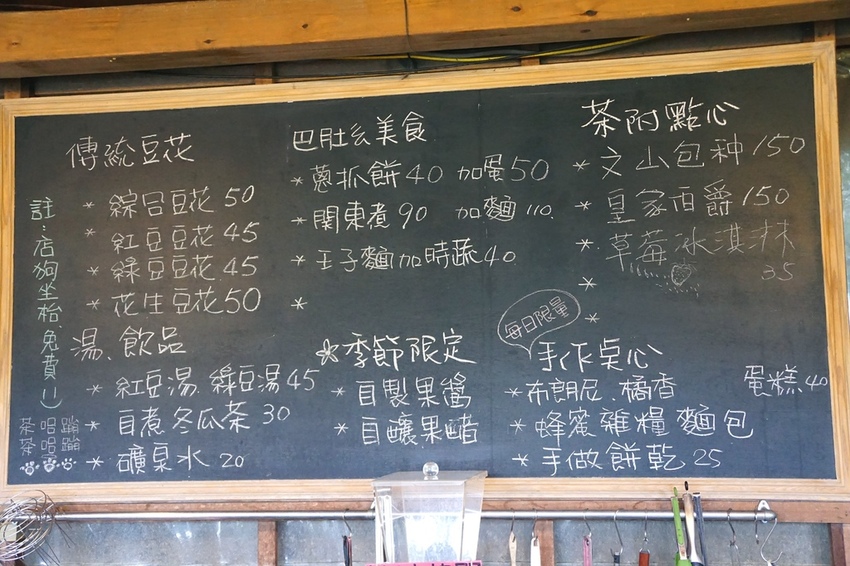 傳統豆花
* 綜合豆花 50
* 紅豆豆花 45
* 綠豆豆花 45
* 花生豆花 50
湯、飲品
* 紅豆湯、綠豆湯 45
* 自煮冬瓜茶 30
* 礦泉水 20
註:店狗坐枱、免費!!
茶唱蹦
茶唱蹦
巴肚幺美食
* 蔥抓餅 40 加蛋 50
* 関東煮 90 加麵 110.
* 王子麵加時蔬 40.
*
季節限定
* 自製果醬
* 自釀果醋
茶附點心
* 文山包种 150
* 皇家伯爵 150
* 草莓冰淇淋
35
*
*
每日限量
手作点心
* 布朗尼、橘香蛋糕 40
* 蜂蜜雜糧麵包
* 手做餅乾 25